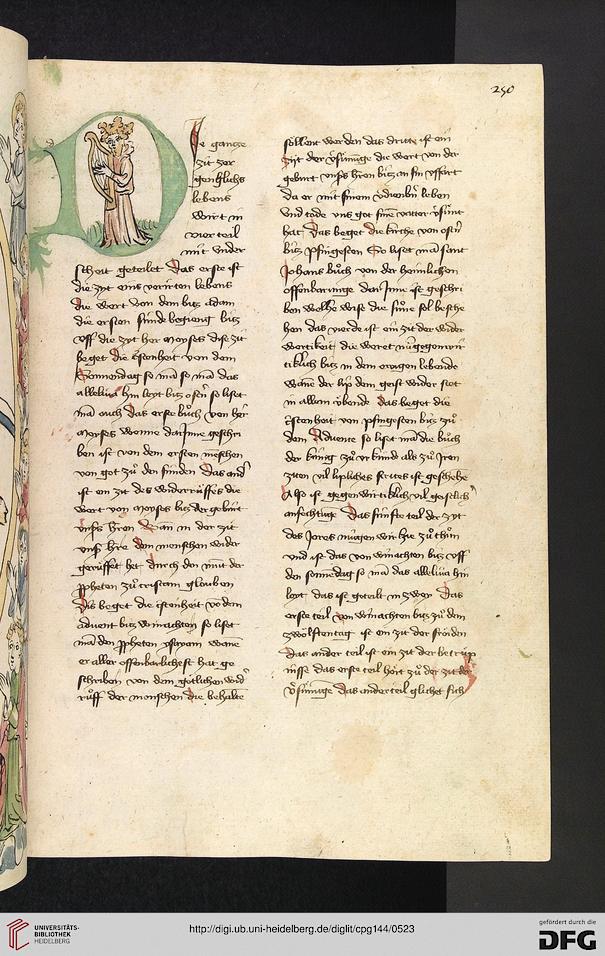 250
Die gantze
zit zer
genglichs
lebens
wirt in
vier teil
mit vnder
scheit geteilet Das erste ist
die zyt eins verirten lebens
die wert von dem bitz adam
die ersten sunde begieng bitz
vff die zyt her moyses dise zit
beget die cristenheit von dem
Sonnendag so man so man das
alleluia hin leyt bitz ostern so liset
man ouch das erste buch von her
moyses wenne dar Inne geschri
ben ist von dem ersten menschen
von got zu den sunden Das ander
ist ein zit des widerruffes die
wert von moyses bitz der geburt
vnsers heren Wan in der zit
vnser here dem menschen wider
geruffet het durch den mut der
propheten zu cristam glouben
Dis beget die cristenheit von dem
aduent bitz winachten so liset
man den propheten ysayam wanne
er aller offenbarlichest hat ge
schriben von dem gotlichen wider
ruff der menschen die behalten
sollent werden das dritte ist ein
zijt der versunuge die wert von der
geburt vnsers heren bitz an sin vffart
da er mit sinem lebende
vnd tode vns got sime vatter versunt
hat Das beget die kirche von ostern
bitz pfingesten So liset man sant
Johans buch von der heimlichen
offenbarunge dar Inne ist geschri
ben welhe wise die sune sol besche
hen das vierde ist ein zit der wider
wertikeit die weret nu gegenwir
tiklich bitz in dem ewigen lebende
wanne der lip dem geist wider stet
in allem lebende das beget die
cristenheit von pfingesten bitz zu
dem Aduent so liset man die buch
der kunig zu vrkunde als zu Iren
ziten vil lipliches strites ist geschehen
Also ist gegenwirtiklich vil geistlich
anfechtunge Das funfte teil der zyt
des Jores mugen wir hie zu thun
vnd ist das von winachten bitz vff
den sonnedag so man das alleluia hin
leyt das ist geteilt in zwey Das
erste teil von winachten bitz zu dem
zwolften tag ist ein zit der froiden
das ander teil ist ein zit der betrup
nisse das erste teil hort zu der zit der
versunuge das ander teil glichet sich
UNIVERSITÄTS-
BIBLIOTHEK
HEIDELBERG
http://digi.ub.uni-heidelberg.de/diglit/cpg144/0523
gefördert durch die
DFG